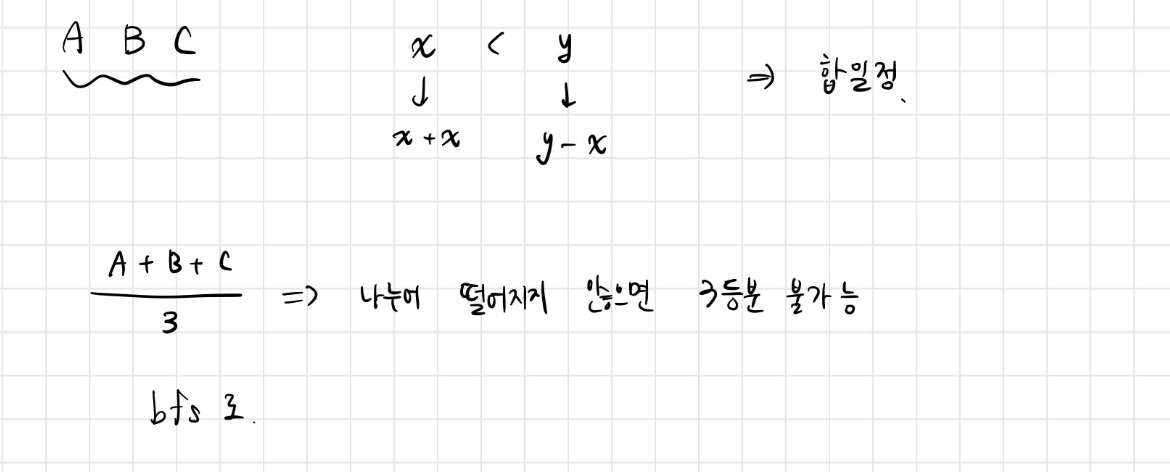 A B C
x < y ⇒ 합일정.
↓ ↓
x+x y-x
A + B + C
3
⇒ 나누어 떨어지지 않으면 3등분 불가능
bfs 로.